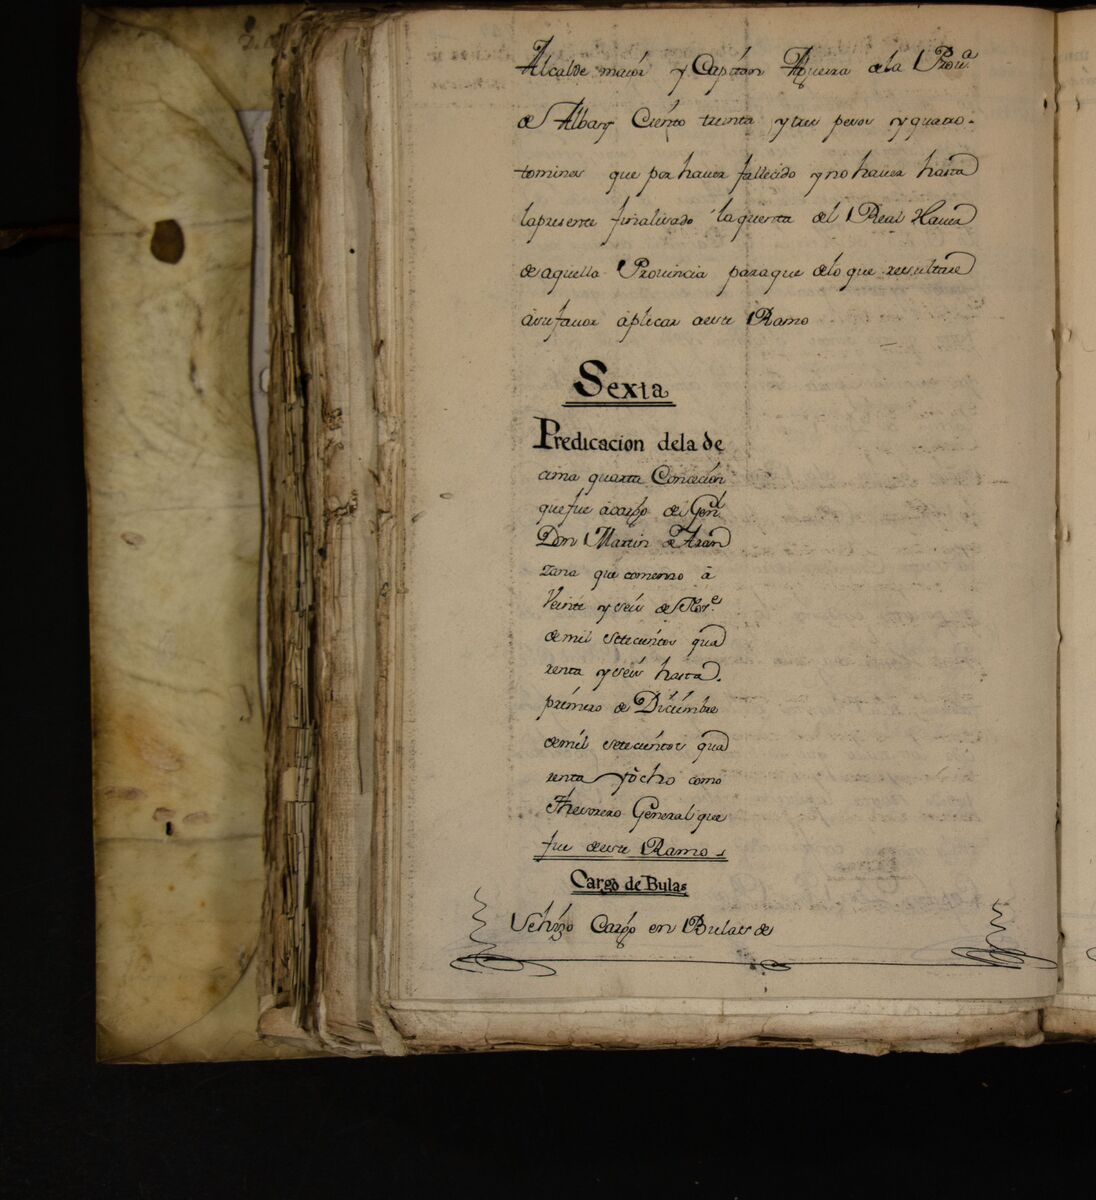 Alcalde maior y Capitan Aguerra dela Prov.ª
de Albay Ciento treinta y tres pesos y quatro
tomines que por haver fallecido y no haver hasta
lapresente finalizado la quenta del Real Haver
de aquella Provincia paraque delo que resultare
àsufavor àplicar aeste Ramo
Sexta
Predicacion dela de
cima quarta Concecion
quefue àcargo de Gen.l
Don Martin de Aran
zana que comenso à
Veinte y seis de Nov.e
de mil setecientos qua
renta y seis hasta
primero de Diciembre
de mil setecientos qua
renta yòcho como
Thesorero General que
fue deeste Ramo
Cargo de Bulas
Sehizo Cargo en Bulas de